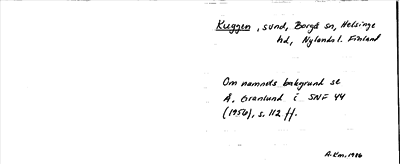 Kuggen, sund, Borgå sn, Helsinge
hd, Nylands l. Finland
Om namnets bakgrund se
Å. Granlund i SNF 44
(1956), s. 112 ff.
A.Km. 1986